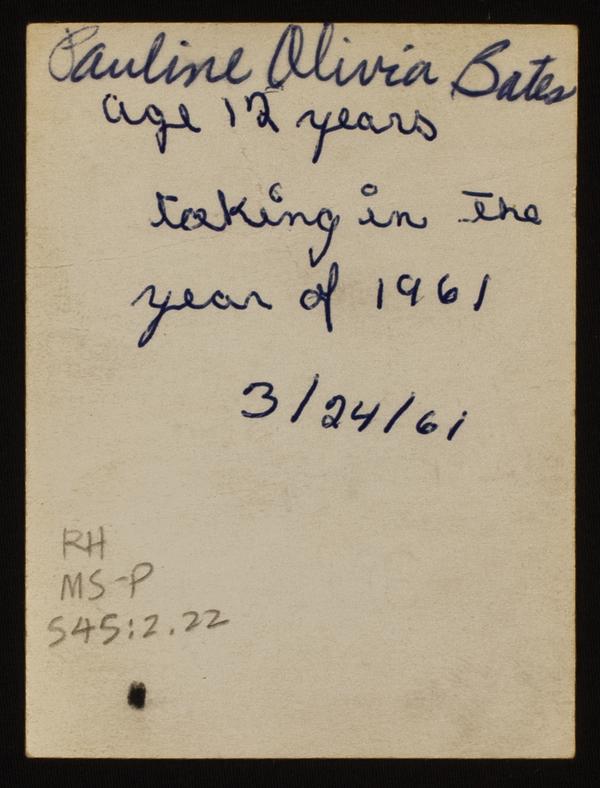 Pauline Olivia Bates
age 12 years
taking in the
year of 1961
3/24/61
RH
MS-P
545:2.22